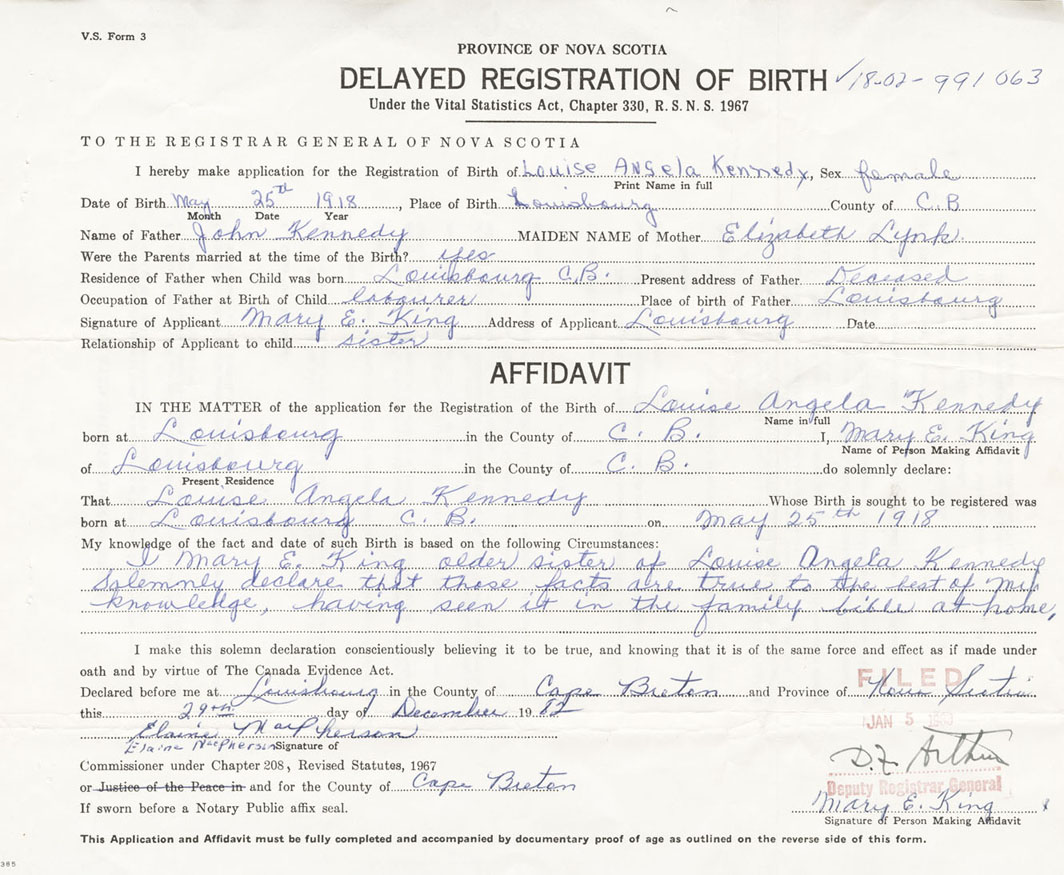 V.S. Form 3
PROVINCE OF NOVA SCOTIA
DELAYED REGISTRATION OF BIRTH ✓18-02-991063
Under the Vital Statistics Act, Chapter 330, R. S. N. S. 1967
TO THE REGISTRAR GENERAL OF NOVA SCOTIA
I hereby make application for the Registration of Birth of Louise Angela Kennedy, Sex female
Print Name in full
Date of Birth May 25th 1918, Place of Birth Louisbourg County of C.B
Month Date Year
Name of Father John Kennedy MAIDEN NAME of Mother Elizabeth Lynk.
Were the Parents married at the time of the Birth? yes
Residence of Father when Child was born Louisbourg C.B. Present address of Father Deceased
Occupation of Father at Birth of Child labourer Place of birth of Father Louisbourg
Signature of Applicant Mary E. King Address of Applicant Louisbourg Date
Relationship of Applicant to child sister
AFFIDAVIT
IN THE MATTER of the application for the Registration of the Birth of Louise Angela Kennedy
Name in full
born at Louisbourg in the County of C. B. I, Mary E. King
Name of Person Making Affidavit
of Louisbourg in the County of C. B. do solemnly declare:
Present Residence
That Louise Angela Kennedy Whose Birth is sought to be registered was
born at Louisbourg C. B. on May 25th 1918
My knowledge of the fact and date of such Birth is based on the following Circumstances:
I Mary E. King older sister of Louise Angela Kennedy
Solemnly declare that those facts are true to the best of my
knowledge, having seen it in the family bible at home,
I make this solemn declaration conscientiously believing it to be true, and knowing that it is of the same force and effect as if made under
oath and by virtue of The Canada Evidence Act.
Declared before me at Louisbourg in the County of Cape Breton and Province of Nova Scotia
FILED
this 29th day of December 1982
JAN 5
Elaine MacPherson
Elaine MacPherson Signature of
Commissioner under Chapter 208, Revised Statutes, 1967
D.F. Arthur
or Justice of the Peace in and for the County of Cape Breton
Deputy Registrar General
If sworn before a Notary Public affix seal.
Mary E. King
Signature of Person Making Affidavit
This Application and Affidavit must be fully completed and accompanied by documentary proof of age as outlined on the reverse side of this form.
385